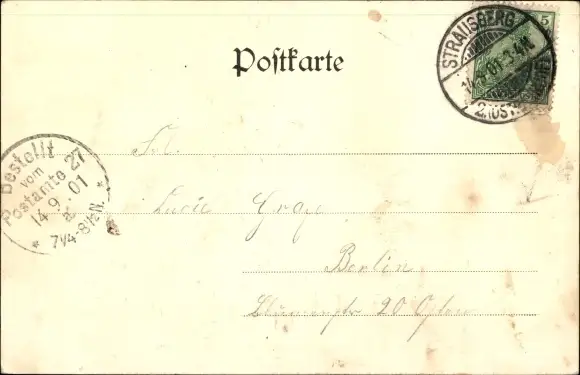 Postkarte
STRAUSBERG
5
14.9.01.3-4N.
Bestellt
vom
Postamte 27
14.9.01
7¼-8½N.
Frl.
Lucie
Berlin
Blumenstr 20